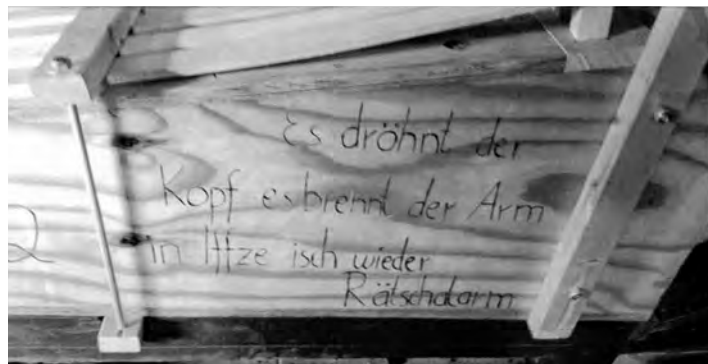 Es dröhnt der
Kopf es brennt der Arm
in Iffze isch wieder
Rätschalarm
2